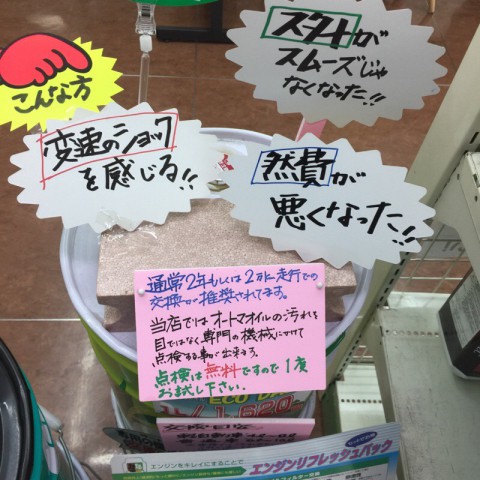 こんな方
スタートが
スムーズじゃ
なくなった!!
変速のショック
を感じる!!
然費が
悪くなった!!
通常2年もしくは2万km走行での
交換が推奨されてます。
当店ではオートマオイルの汚れを
目ではなく専門の機械にかけて
点検する事が出来ます。
点検は無料ですので1度
お試し下さい。
ECO
1,620
エンジンをキレイにすることで
エンジンリフレッシュパック